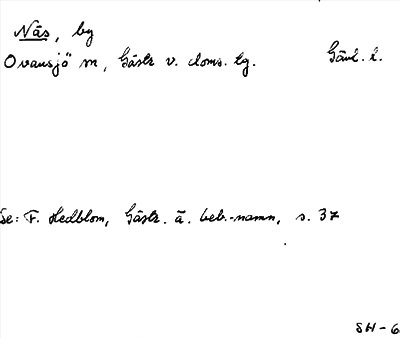 Näs, by
Ovansjö sn, Gästr v. doms. tg. Gävl. l.
Se: F. Hedblom, Gästr. ä. beb.-namn, s. 37
SH-6